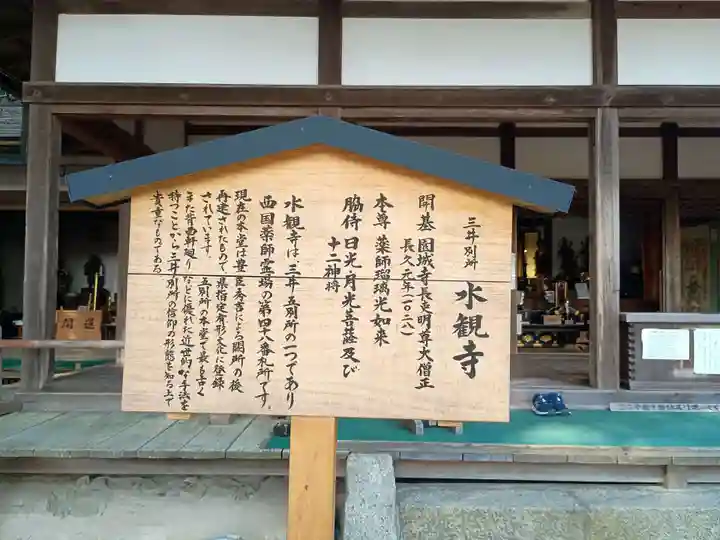 三井別所
水観寺
開基 園城寺長吏明尊大僧正
長久元年(一〇二八)
本尊 薬師瑠璃光如来
脇侍 日光・月光菩薩及び
十二神将
水観寺は、三井五別所の一つであり
西国薬師霊場の第四十八番札所です。
現在の本堂は豊臣秀吉による闕所の後
再建されたもので、県指定有形文化に登録
されています。五別所の本堂で最も古く
また背面軒廻りなどに優れた近世的な手法を
持つことから三井別所の信仰の形態を知る上で
貴重なものである
開運